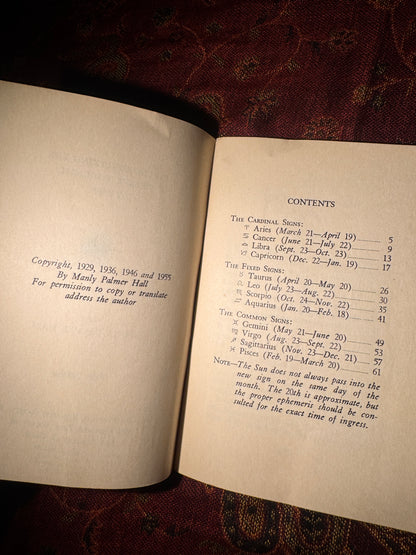 Copyright, 1929, 1936, 1946 and 1955
By Manly Palmer Hall
For permission to copy or translate
address the author
CONTENTS
THE CARDINAL SIGNS:
♈ Aries (March 21—April 19) 5
♋ Cancer (June 21—July 22) 9
♎ Libra (Sept. 23—Oct. 23) 13
♑ Capricorn (Dec. 22—Jan. 19) 17
THE FIXED SIGNS:
♉ Taurus (April 20—May 20) 26
♌ Leo (July 23—Aug. 22) 30
♏ Scorpio (Oct. 24—Nov. 22) 35
♒ Aquarius (Jan. 20—Feb. 18) 41
THE COMMON SIGNS:
♊ Gemini (May 21—June 20) 49
♍ Virgo (Aug. 23—Sept. 22) 53
♐ Sagittarius (Nov. 23—Dec. 21) 57
♓ Pisces (Feb. 19—March 20) 61
NOTE—The Sun does not always pass into the
new sign on the same day of the
month. The 20th is approximate, but
the proper ephemeris should be con-
sulsed for the exact time of ingress.